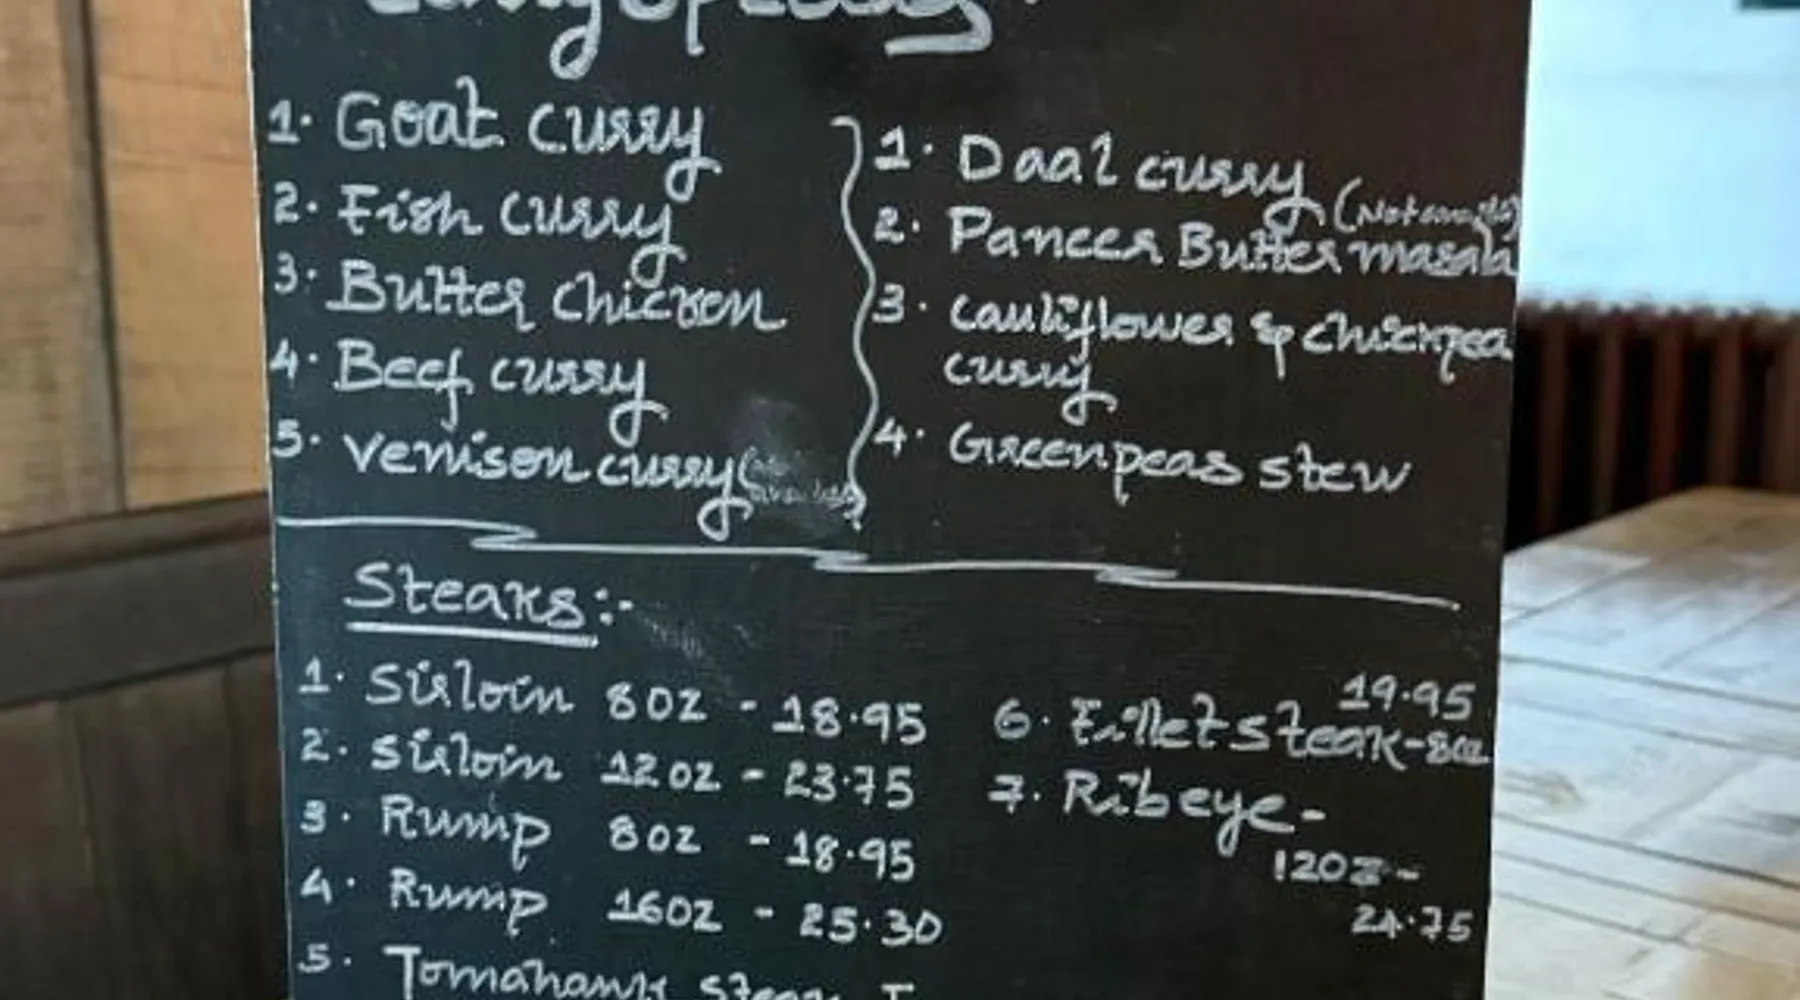 1. Goat curry
2. Fish curry
3. Butter chicken
4. Beef curry
5. Venison curry
1. Daal curry
2. Paneer Butter masala
3. cauliflower & chickpea
curry
4. Greenpeas stew
Steaks:-
1. Sirloin 8oz - 18.95
2. Sirloin 12oz - 23.75
3. Rump 8oz - 18.95
4. Rump 16oz - 25.30
5. Tomahawk steak
19.95
6. Fillet steak - 8oz
7. Ribeye -
12oz -
24.75